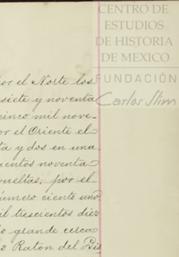 CENTRO DE
ESTUDIOS
DE HISTORIA
DE MEXICO
FUNDACIÓN
Carlos Slim
por el Norte los
siete y noventa
cinco mil nove-
por el Oriente el
ta y dos en una
cientos noventa
vueltas, por el
número ciento uno
mil trescientos diez
lo grande cerca
Ratón del